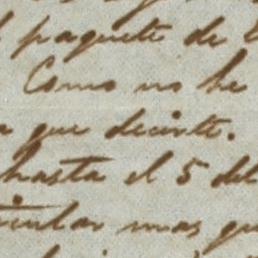 paquete de
Como no he
que decirte.
hasta el 5 del
mas